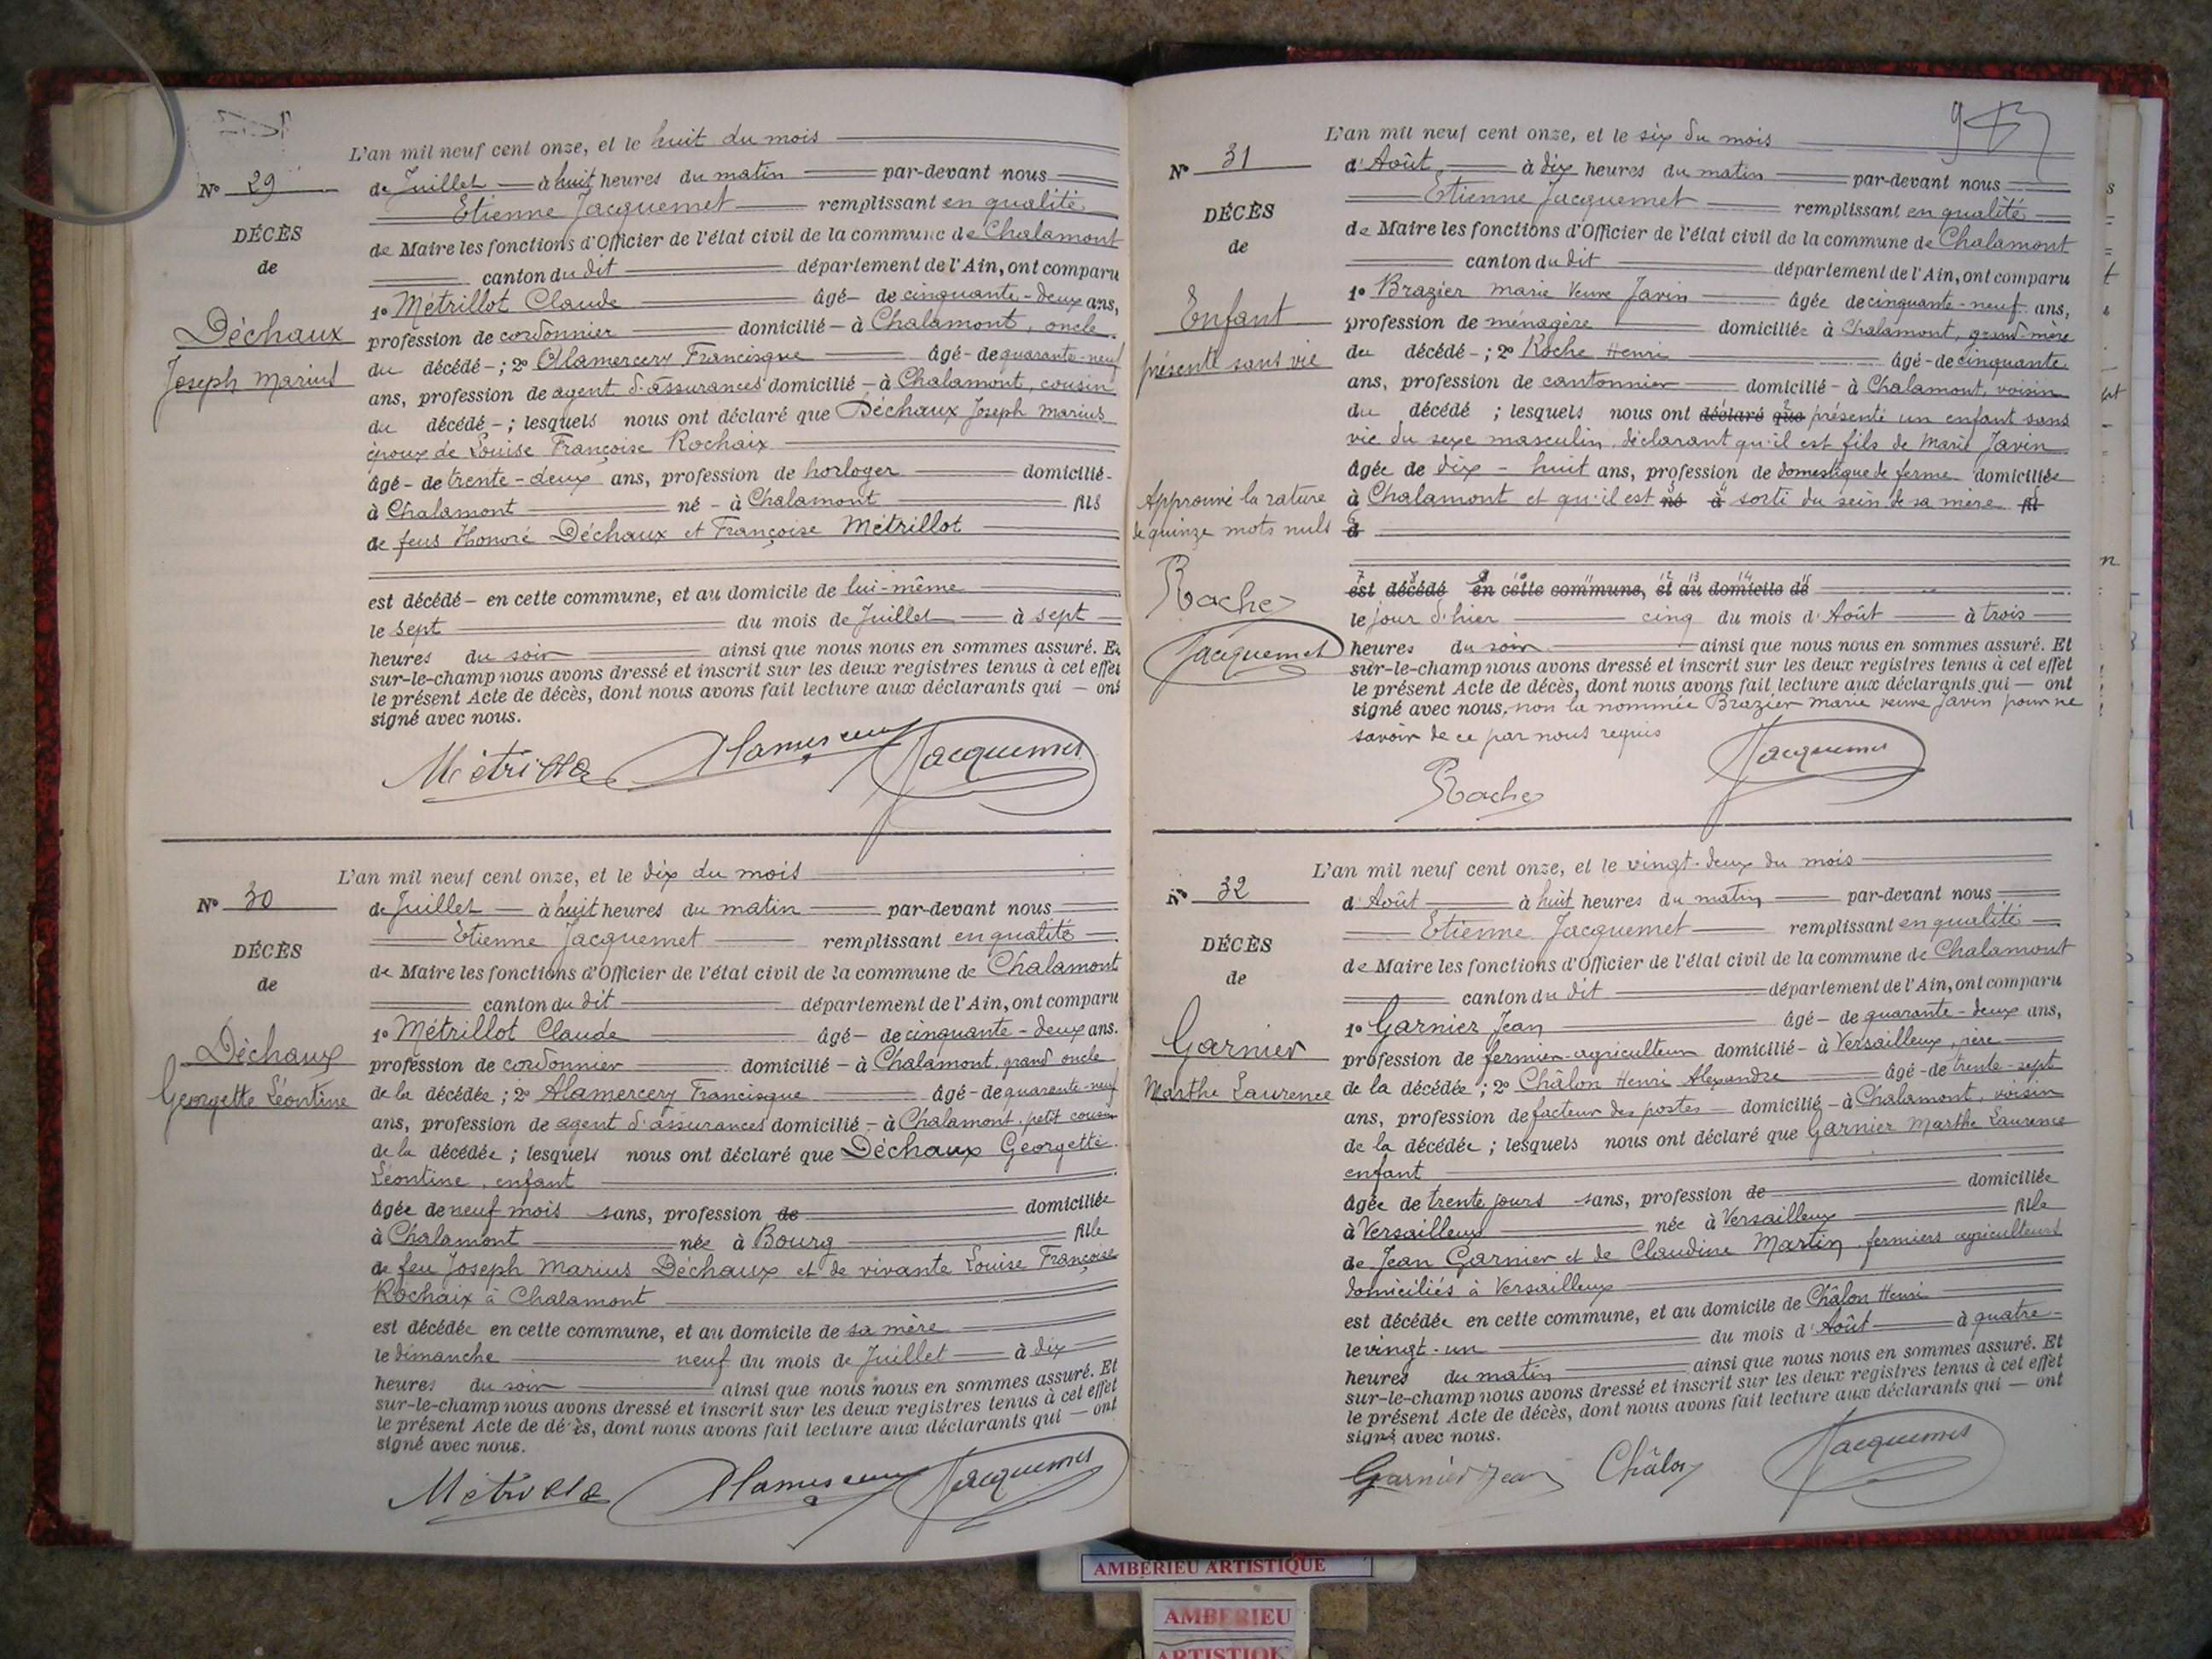 L'an mil neuf cent onze, et le huit du mois
Nº 29
de Juillet à huit heures du matin par-devant nous
Etienne Jacquemet remplissant en qualité
DÉCÈS
de Maire les fonctions d'Officier de l'état civil de la commune de Chalamont
de
canton du dit département de l'Ain, ont comparu
1º Métrillot Claude âgé de cinquante-deux ans,
Déchaux
profession de cordonnier domicilié à Chalamont, oncle
Joseph Marius
du décédé ; 2º Alamercery Francisque âgé de quarante-neuf
ans, profession de agent d'assurances domicilié à Chalamont, cousin
du décédé ; lesquels nous ont déclaré que Déchaux Joseph Marius
époux de Louise Françoise Rochaix
âgé de trente-deux ans, profession de horloger domicilié
à Chalamont né à Chalamont fils
de feus Honoré Déchaux et Françoise Métrillot
est décédé en cette commune, et au domicile de lui-même
le sept du mois de Juillet à sept
heures du soir ainsi que nous nous en sommes assuré. Et
sur-le-champ nous avons dressé et inscrit sur les deux registres tenus à cet effet
le présent Acte de décès, dont nous avons fait lecture aux déclarants qui ont
signé avec nous.
Métrillot Alamercery Jacquemet
L'an mil neuf cent onze, et le dix du mois
Nº 30
de Juillet à huit heures du matin par-devant nous
Etienne Jacquemet remplissant en qualité
DÉCÈS
de Maire les fonctions d'Officier de l'état civil de la commune de Chalamont
de
canton du dit département de l'Ain, ont comparu
1º Métrillot Claude âgé de cinquante-deux ans.
Déchaux
profession de cordonnier domicilié à Chalamont, grand oncle
Georgette Léontine
de la décédée ; 2º Alamercery Francisque âgé de quarante-neuf
ans, profession de agent d'assurances domicilié à Chalamont, petit cousin
de la décédée ; lesquels nous ont déclaré que Déchaux Georgette
Léontine, enfant
âgée de neuf mois sans, profession de domiciliée
à Chalamont née à Bourg fille
de feu Joseph Marius Déchaux et de vivante Louise Françoise
Rochaix à Chalamont
est décédée en cette commune, et au domicile de sa mère
le dimanche neuf du mois de Juillet à dix
heures du soir ainsi que nous nous en sommes assuré. Et
sur-le-champ nous avons dressé et inscrit sur les deux registres tenus à cet effet
le présent Acte de décès, dont nous avons fait lecture aux déclarants qui ont
signé avec nous.
Métrillot Alamercery Jacquemet
9
L'an mil neuf cent onze, et le six du mois
Nº 31
d'Août à dix heures du matin par-devant nous
Etienne Jacquemet remplissant en qualité
DÉCÈS
de Maire les fonctions d'Officier de l'état civil de la commune de Chalamont
de
canton du dit département de l'Ain, ont comparu
1º Brazier Marie Veuve Javin âgée de cinquante-neuf ans,
Enfant
profession de ménagère domiciliée à Chalamont, grand-mère
présenté sans vie
du décédé ; 2º Roche Henri âgé de cinquante
ans, profession de cantonnier domicilié à Chalamont, voisin
du décédé ; lesquels nous ont déclaré que présenté un enfant sans
vie du sexe masculin, déclarant qu'il est fils de Marie Javin
âgée de dix-huit ans, profession de domestique de ferme domiciliée
à Chalamont et qu'il est né à sorti du sein de sa mère fil
Approuvé la rature
de quinze mots nuls
d
Roche
Jacquemet
est décédé en cette commune, et au domicile de
le jour d'hier cinq du mois d'Août à trois
heures du soir ainsi que nous nous en sommes assuré. Et
sur-le-champ nous avons dressé et inscrit sur les deux registres tenus à cet effet
le présent Acte de décès, dont nous avons fait lecture aux déclarants qui ont
signé avec nous, non la nommée Brazier Marie veuve Javin pour ne
savoir de ce par nous requis
Roche Jacquemet
L'an mil neuf cent onze, et le vingt-deux du mois
Nº 32
d'Août à huit heures du matin par-devant nous
Etienne Jacquemet remplissant en qualité
DÉCÈS
de Maire les fonctions d'Officier de l'état civil de la commune de Chalamont
de
canton du dit département de l'Ain, ont comparu
1º Garnier Jean âgé de quarante-deux ans,
Garnier
profession de fermier-agriculteur domicilié à Versailleux, père
Marthe Laurence
de la décédée ; 2º Châlon Henri Alexandre âgé de trente-sept
ans, profession de facteur des postes domicilié à Chalamont, voisin
de la décédée ; lesquels nous ont déclaré que Garnier Marthe Laurence
enfant
âgée de trente jours sans, profession de domiciliée
à Versailleux née à Versailleux fille
de Jean Garnier et de Claudine Martin, fermiers agriculteurs
domiciliés à Versailleux
est décédée en cette commune, et au domicile de Châlon Henri
le vingt-un du mois d'Août à quatre
heures du matin ainsi que nous nous en sommes assuré. Et
sur-le-champ nous avons dressé et inscrit sur les deux registres tenus à cet effet
le présent Acte de décès, dont nous avons fait lecture aux déclarants qui ont
signé avec nous.
Garnier Jean Châlon Jacquemet
AMBERIEU ARTISTIQUE
AMBERIEU